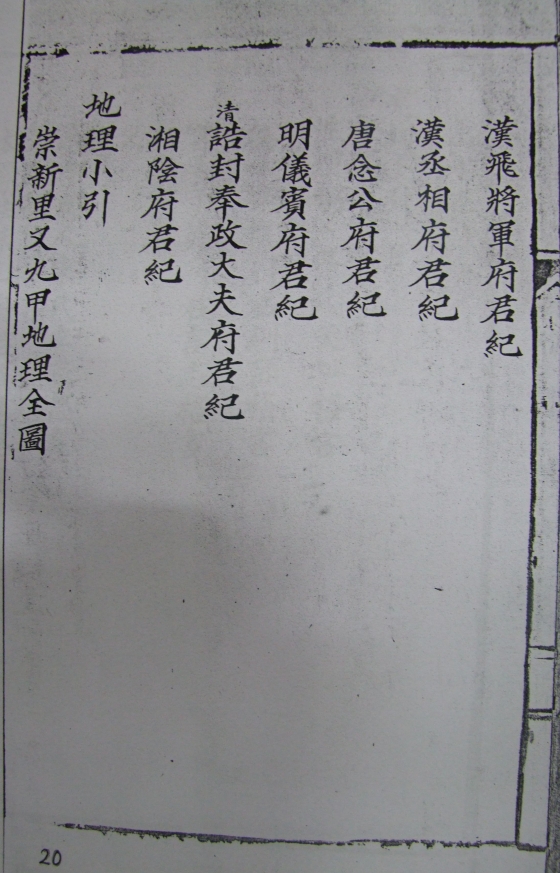 漢飛將軍府君紀
漢丞相府君紀
唐念公府君紀
明儀賓府君紀
清誥封奉政大夫府君紀
湘陰府君紀
地理小引
崇新里又九甲地理全圖
20